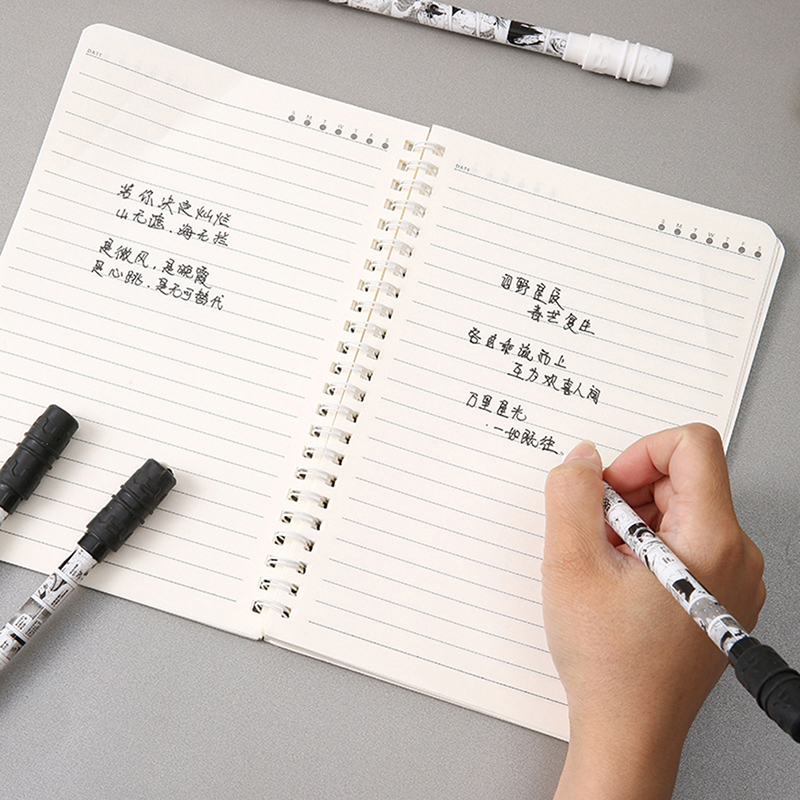 DATE
S M T W T F S
若你决定灿烂
山无遮，海无拦
是微风，是晚霞
是心跳，是无可替代
DATE
S M T W T F S
野星辰
复生
各自乘流而上
互为欢喜人间
万里星光
一如既往。